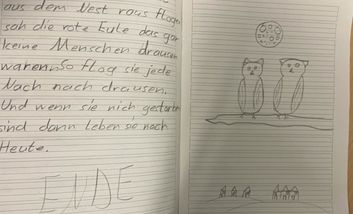 aus dem Nest raus flogen
sah die rote Eule das gar
keine Menschen drausen
waren. So flog sie jede
Nach nach drausen.
Und wenn sie nich gestorben
sind dann leben sie noch
Heute.
ENDE